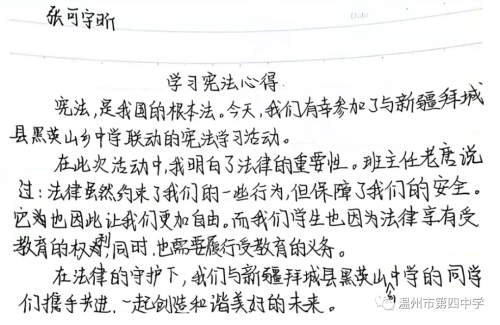 张可字昕
Date
学习宪法心得.
宪法,是我国的根本法。今天,我们有幸参加了与新疆拜城
县黑英山乡中学联动的宪法学习活动。
在此次活动中,我明白了法律的重要性。班主任老唐说
过:法律虽然约束了我们的一些行为,但保障了我们的安全。
它也因此让我们更加自由。而我们学生也因为法律享有受
教育的权利,同时,也需要履行受教育的义务。
在法律的守护下,我们与新疆拜城县黑英山乡中学的同学
们携手共进,一起创造和谐美好的未来。
温州市第四中学